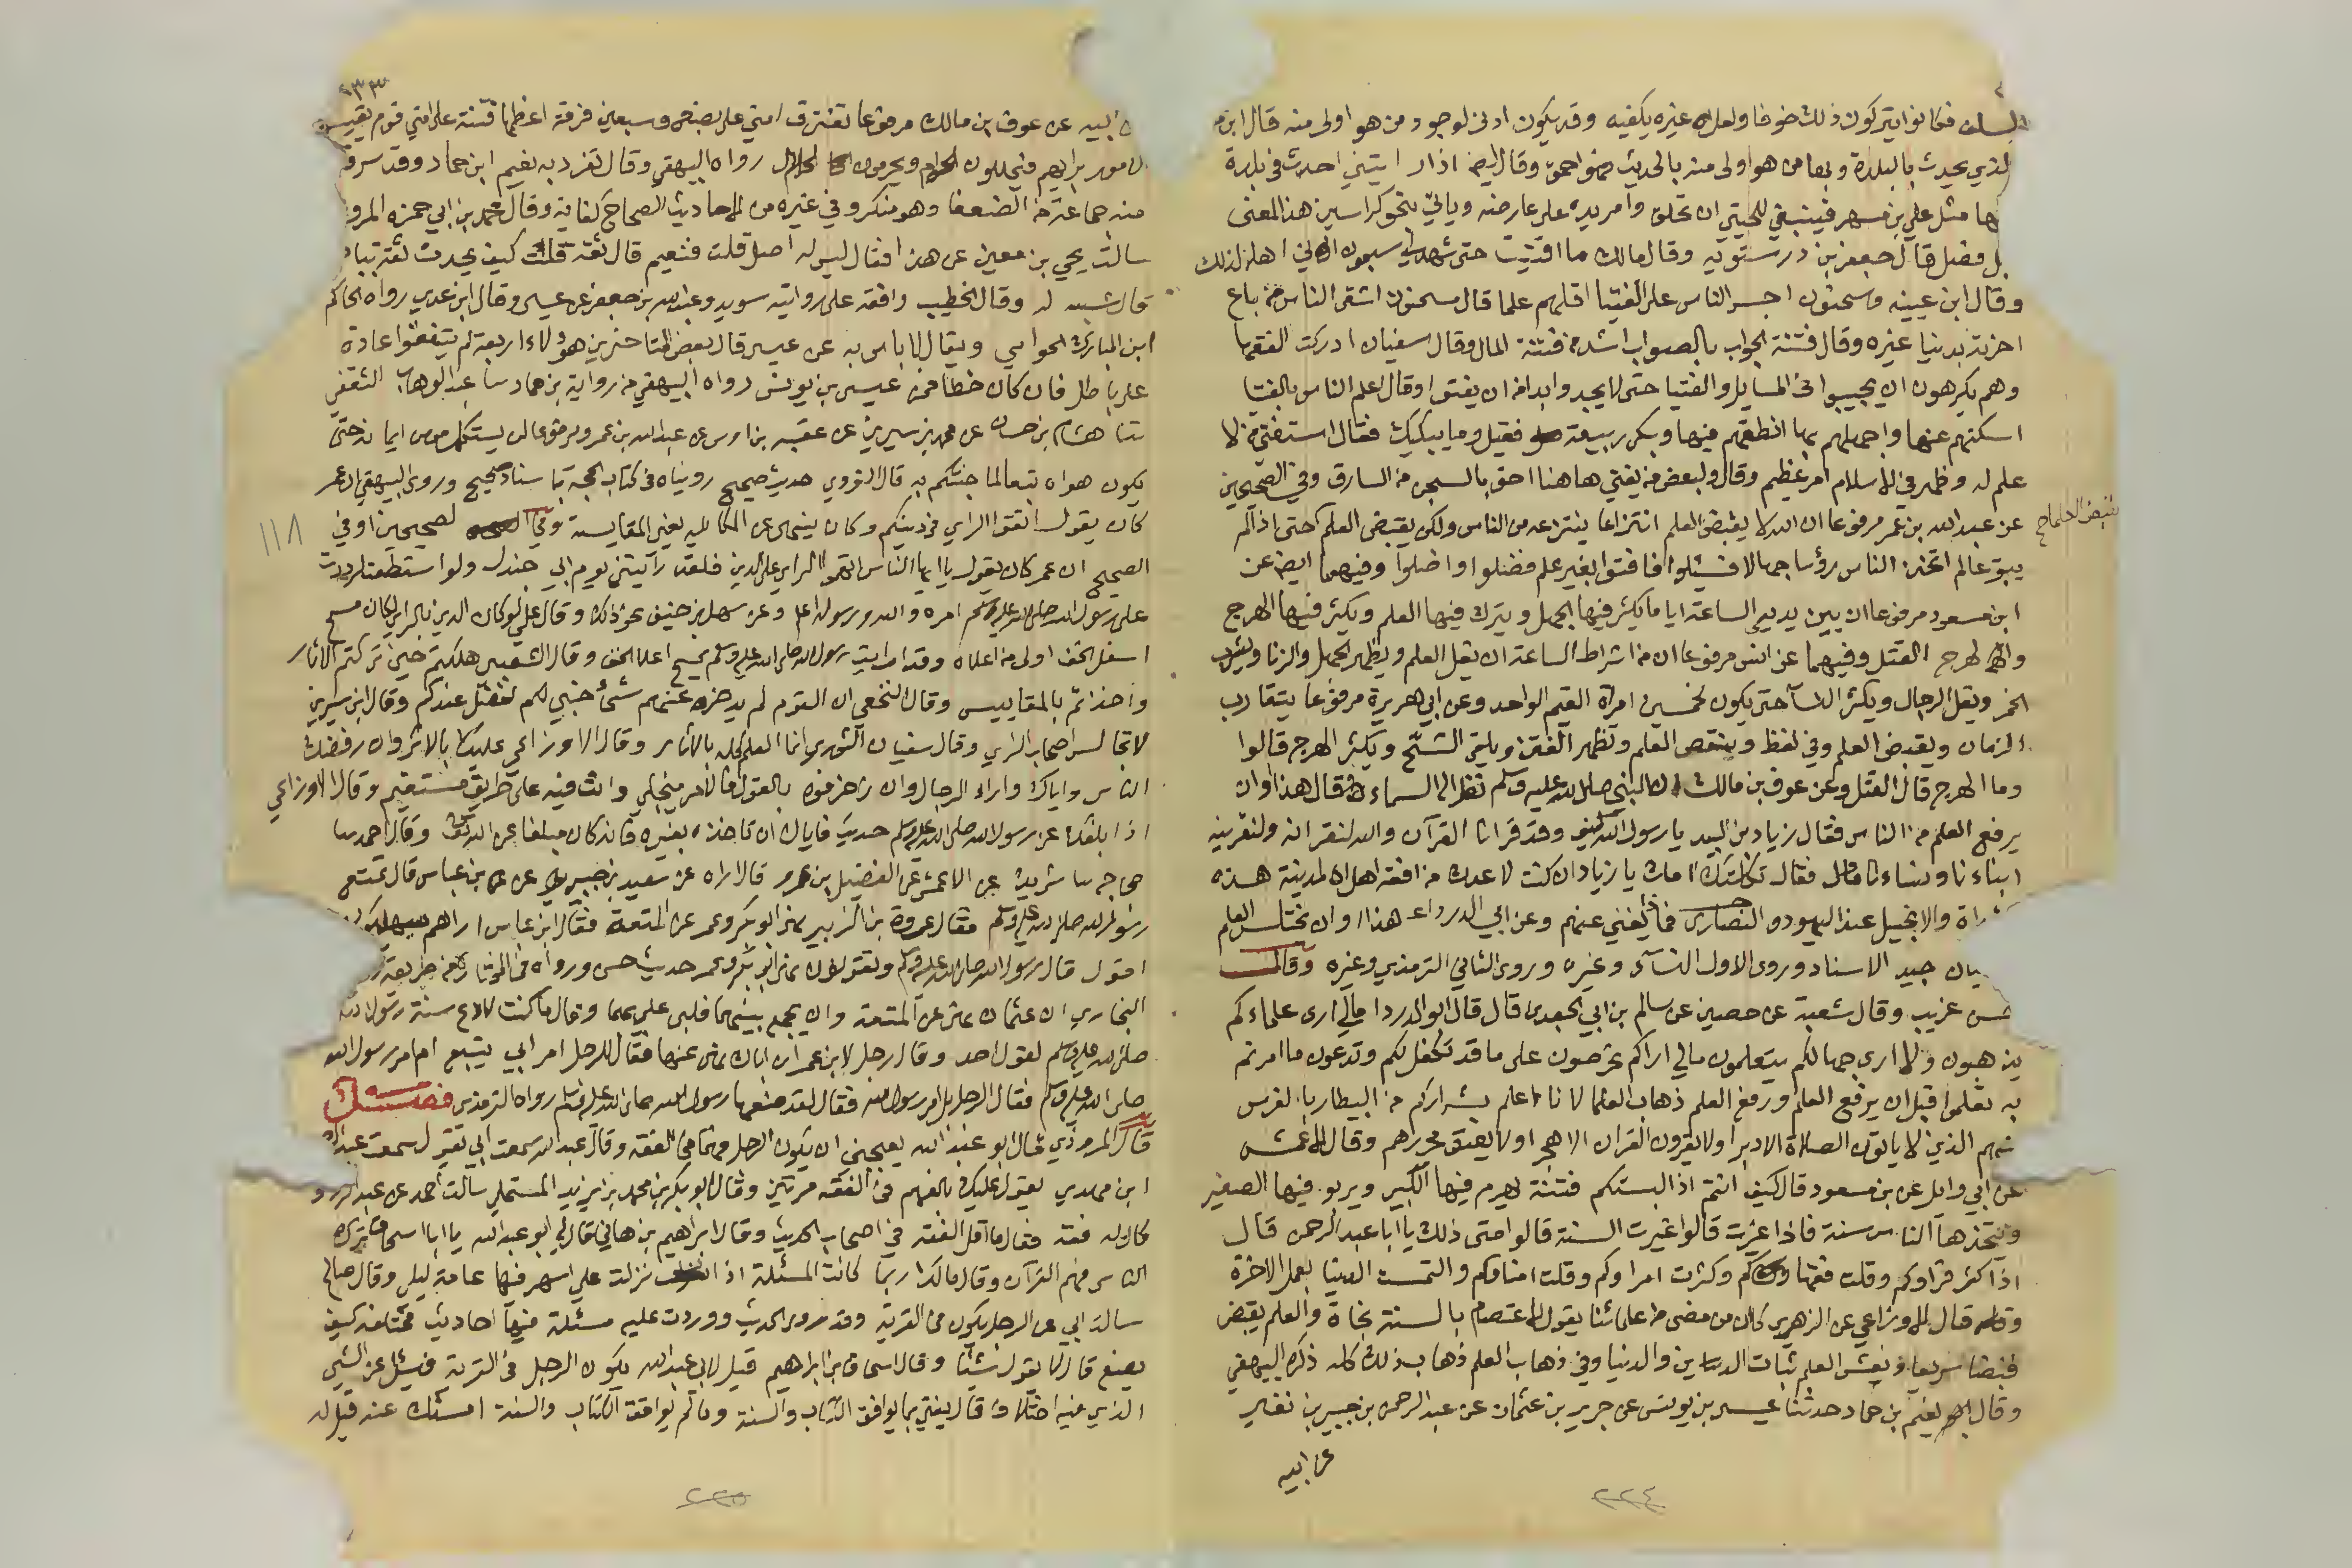 السلف فكانوا يتركون ذلك خوفا ولعل غيره يكفيه وقد يكون ادنى لوجود من هو اولى منه قال ابن
الذي يحدث بالبلدة وبها من هو اولى منه بالحديث فهو احمق وقال ايضا اذا رايتني احدث في بلدة
بها مثل علي بن مسهر فينبغي للحيتي ان تحلق وامر يده على عارضه وياتي نحو كراسين هذا المعنى
بل فضل قال جعفر بن درستويه وقال مالك ما افتيت حتى شهد لي سبعون اني اهل لذلك
وقال ابن عيينه وسحنون اجسر الناس على الفتيا اقلهم علما قال سحنون اشقى الناس من باع
اخرته بدنيا غيره وقال فتنة الجواب بالصواب اشد من فتنة المال وقال سفيان ادركت الفقها
وهم يكرهون ان يجيبوا في المسايل والفتيا حتى لا يجدوا بدا من ان يفتوا وقال اعلم الناس بالفتيا
اسكتهم عنها واجهلهم بها انطقهم فيها وبكى ربيعة فقيل وما يبكيك فقال استفتي من لا
علم له وظهر في الاسلام امر عظيم وقال ولبعض من يفتي هاهنا احق بالسجن من السارق وفي الصحيحين
عن عبد الله بن عمر مرفوعا ان الله لا يقبض العلم انتزاعا ينتزعه من الناس ولكن يقبض العلما حتى اذا لم
يبق عالم اتخذ الناس رؤسا جهالا فسئلوا فافتوا بغير علم فضلوا واضلوا وفيهما ايضا عن
ابن مسعود مرفوعا ان بين يدي الساعة اياما يكثر فيها الجهل ويترك فيها العلم ويكثر فيها الهرج
والهرج القتل وفيهما عن انس مرفوعا ان من اشراط الساعة ان يقل العلم ويظهر الجهل والزنا ويشرب
الخمر ويقل الرجال ويكثر النسآ حتى يكون لخمسين امرأة القيم الواحد وعن ابي هريرة مرفوعا يتقارب
الزمان ويقبض العلم وفي لفظ وينقص العلم وتظهر الفتن ويلقى الشح ويكثر الهرج قالوا
وما الهرج قال القتل وعن عوف بن مالك ان النبي صلى الله عليه وسلم نظر الى السماء فقال هذا اوان
يرفع العلم من الناس فقال زياد بن لبيد يا رسول الله كيف وقد قرانا القرآن والله لنقرانه ولنقرينه
ابناءنا ونساءنا فقال ثكلتك امك يا زياد ان كنت لاعدك من افقه اهل المدينة هذه
التوراة والانجيل عند اليهود والنصارى فماذا يغني عنهم وعن ابي الدرداء هذا اوان يختلس العلم
جيد الاسناد وروى الاول النسآى وغيره وروى الثاني الترمذي وغيره وقال
حسن غريب وقال شعبة عن حصين عن سالم بن ابي الجعد قال قال ابو الدردا مالي ارى علماءكم
يذهبون ولا ارى جهالكم يتعلمون مالي اراكم تحرصون على ما قد تكفل لكم وتدعون ما امرتم
به تعلموا قبل ان يرفع العلم ورفع العلم ذهاب العلما لانا اعلم بشراركم من البيطار بالفرس
هم الذين لا ياتون الصلاة الا دبرا ولا يقرون القران الا هجرا ولا يعتق محررهم وقال الاعمش
عن ابي وايل عن بن مسعود قال كيف انتم اذا لبستكم فتنة يهرم فيها الكبير ويربو فيها الصغير
ويتخذها الناس سنة فاذا غيرت قالوا غيرت السنة قالوا متى ذلك يا ابا عبد الرحمن قال
اذا كثر قراوكم وقلت فقهاوكم وكثرت امراوكم وقلت امناوكم والتمست الدنيا بعمل الاخرة
وقال الاوزاعي عن الزهري كان من مضى من علمائنا يقول الاعتصام بالسنة نجاة والعلم يقبض
قبضا سريعا ونعش العلم ثبات الدين والدنيا وفي ذهاب العلم ذهاب ذلك كله ذكره البيهقي
وقال نعيم بن حماد حدثنا عيسى بن يونس عن جرير بن عثمان عن عبد الرحمن بن جبير بن نفير
عن ابيه
٢٢٤
١٣٣
ابيه عن عوف بن مالك مرفوعا تفترق امتي على بضع وسبعين فرقة اعظمها فتنة على امتي قوم يقيسون
الامور برايهم فيحللون الحرام ويحرمون الحلال رواه البيهقي وقال تفرد به نعيم ابن حماد وقد سرقه
منه جماعة من الضعفا وهو منكر وفي غيره من الاحاديث الصحاح كفاية وقال محمد بن ابي حمزه المروزي
سالت يحي بن معين عن هذا فقال ليس له اصل قلت فنعيم قال ثقة قلت كيف يحدث ثقة بباطل
قال شبه له وقال الخطيب وافقه على روايته سويد وعبد الله بن جعفر عن عيسى وقال ابن عدي رواه الحاكم
ابن المبارك الخواستي ويقال لا باس به عن عيسى قال بعض المتاخرين هولاء اربعة لم يتفقوا عادة
على باطل فان كان خطا فمن عيسى بن يونس رواه البيهقي من رواية بن حماد ثنا عبد الوهاب الثقفي
ثنا هشام بن حسان عن محمد بن سيرين عن عقبه بن اوس عن عبد الله بن عمرو مرفوعا لن يستكمل مومن ايمانه حتى
يكون هواه تبعا لما جئتكم به قال النووي حديث صحيح رويناه في كتاب الحجة باسناد صحيح وروى البيهقي ان عمر
كان يقول اتقوا الراي في دينكم وكان ينهى عن المكايله يعني المقايسة وفي الصحيحين او في
الصحيح ان عمر كان يقول يا ايها الناس اتهموا الراي على الدين فلقد رآيتني يوم ابي جندل ولو استطعت لرددت
على رسول الله صلى الله عليه وسلم امره والله ورسوله اعلم وعن سهل بن حنيف نحو ذلك وقال علي لو كان الدين بالراي لكان مسح
اسفل الخف اولى من اعلاه وقد رايت رسول الله صلى الله عليه وسلم يمسح اعلا الخف وقال الشعبي هلكتم حين تركتم الاثار
واخذتم بالمقاييس وقال النخعي ان القوم لم يدخر عنهم شئ خبي لكم لفضل عندكم وقال ابن سيرين
لا تجالس اصحاب الراي وقال سفيان الثوري انما العلم كله بالاثار وقال الاوزاعي عليك بالاثر وان رفضك
الناس واياك واراء الرجال وان زخرفوه بالقول فالامر ينجلي وانت فيه على طريق مستقيم وقال الاوزاعي
اذا بلغك عن رسول الله صلى الله عليه وسلم حديث فاياك ان تاخذ بغيره فانه كان مبلغا عن الله وقال احمد ثنا
حجاج ثنا شريك عن الاعمش عن الفضيل بن عمرو قال اراه عن سعيد بن جبير عن بن عباس قال تمتع
رسول الله صلى الله عليه وسلم فقال عروة بن الزبير نهى ابو بكر وعمر عن المتعة فقال ابن عباس اراهم سيهلكون
اقول قال رسول الله صلى الله عليه وسلم وتقولون نهى ابو بكر وعمر حديث حسن ورواه في المختارة من طريقه
البخاري ان عثمان نهى عن المتعة وان يجمع بينهما فلبى علي بهما وقال ما كنت لادع سنة رسول الله
صلى الله عليه وسلم لقول احد وقال رجل لابن عمر ان اباك نهى عنها فقال للرجل امر ابي يتبع ام امر رسول الله
صلى الله عليه وسلم فقال الرجل بل امر رسول الله فقال لقد صنعها رسول الله صلى الله عليه وسلم رواه الترمذي فصل
قال المروذي قال ابو عبد الله يعجبني ان يكون الرجل فهما في الفقه وقال عبد الله سمعت ابي يقول سمعت عبد الرحمن
ابن مهدي يقول عليك بالفهم في الفقه مرتين وقال ابو بكر بن محمد بن يزيد المستملي سالت احمد عن عبد الرزاق
كان له فقه فقال ما اقل الفقه في اصحاب الحديث وقال ابراهيم بن هاني قال لي ابو عبد الله يا ابا اسحاق ترك
الناس فهم القرآن وقال مالك ربما كانت المسئلة اذا نزلت علي اسهر فيها عامة ليلي وقال صالح
سالت ابي عن الرجل يكون في القرية وقد روى الحديث ووردت عليه مسئلة فيها احاديث مختلفه كيف
يصنع قال لا يقول شيئا وقال اسحاق بن ابراهيم قيل لابي عبد الله يكون الرجل في القرية فيسئل عن الشي
الذي فيه اختلاف قال يفتي بما يوافق الكتاب والسنة وما لم يوافق الكتاب والسنة امسك عنه قيل له
١١٨
٢٢٥